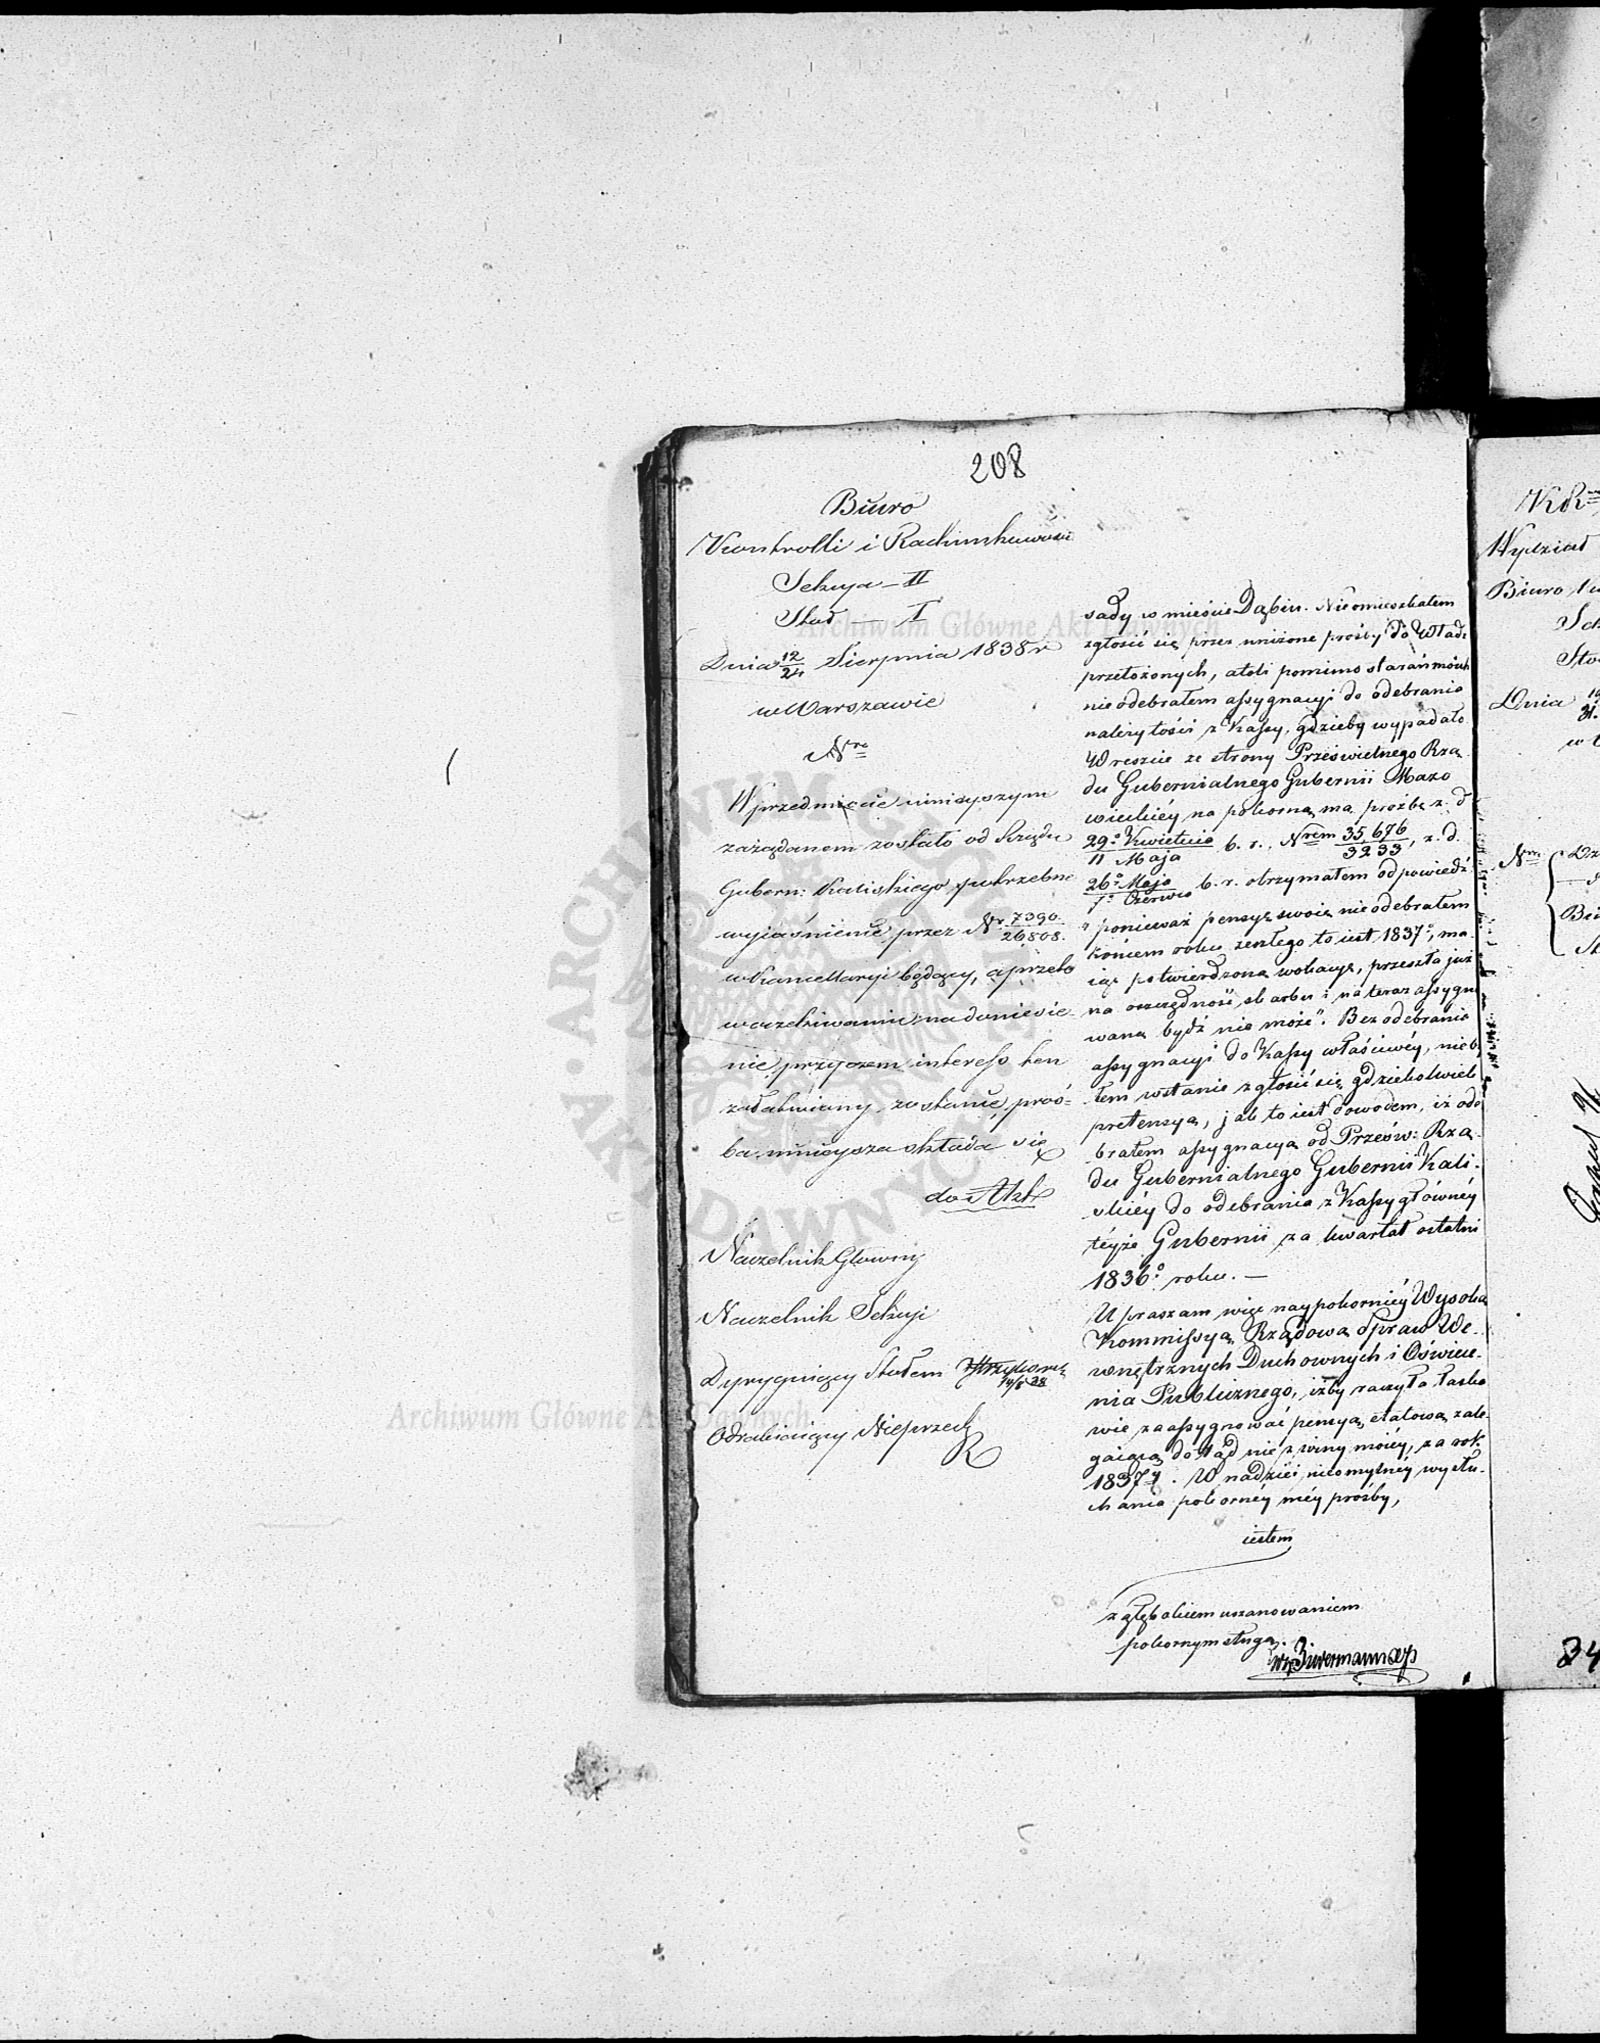 208
Biuro
Kontrolli i Rachunkowości
Sekcya - II
Stoł - I
Dnia 12/24 Sierpnia 1838 r
w Warszawie
Nro
W przedmiocie ninieyszym
zażądanem zostało od Rządu
Gubern: Kaliskiego potrzebne
wyiaśnienie przez Nr 7390/26808.
w Kancellaryi będący, a przeto
w oczekiwaniu na doniesie-
nie, przyczem interess ten
załatwiony zostanie, proś-
ba ninieysza składa się
do Akt
Naczelnik Główny
Naczelnik Sekcyi
Dyryguiący Stołem
Odrabiaiący Nieprzecki
sady w mieście Dąbiu. Nieomieszkałem
zgłosić się przez uniżone prośby do Władz
przełożonych, atoli pomimo starań mòich
nieodebrałem assygnacyi do odebrania
należytości z Kassy, gdzieby wypadało
Wreszcie ze strony Prześwietnego Rzą-
du Gubernialnego Gubernii Mazo
wieckiéy na pokorną mą prożbę z. d
29.° Kwietnia/11 Maja b. r., Nrem 35,676/3233, z. d.
26.° Maja/7.° Czerwca b. r. otrzymałem odpowiedź
„ponieważ pensyę swoią nieodebrałem
końcem roku zeszłego to iest 1837°, ma
iąc potwierdzoną wokacyę, przeszła już
na oszczędność skarbu i na teraz assygno
waną bydź nie może". Bez odebrania
assygnacyi do Kassy właściwey, nieby
łem wstanie zgłosić się gdziekolwiek
pretensyą, jak to iest dowodem, iż ode
brałem assygnacyą od Prześw: Rzą-
du Gubernialnego Gubernii Kali-
skiéy do odebrania z Kassy głównéy
téyże Gubernii za kwartał ostatni
1836.° roku. —
Upraszam więc naypokorniéy Wysoką
Kommissyą Rządową Spraw We-
wnętrznych Duchownych i Oświece-
nia Publicznego, iżby raczyła łaska
wie zaassygnować pensyą etatową zale-
gaiącą dotąd nie z winy moiéy, za rok
1837y. W nadziei nieomylnéy wysłu-
chania pokornéy méy prośby,
iestem
z głębokiem uszanowaniem
pokornym sługą.
Archiwum Główne Akt Dawnych
Archiwum Główne Akt Dawnych
ARCHIWUM GŁÓWNE AKT DAWNYCH
Wydział
Biuro
Dnia